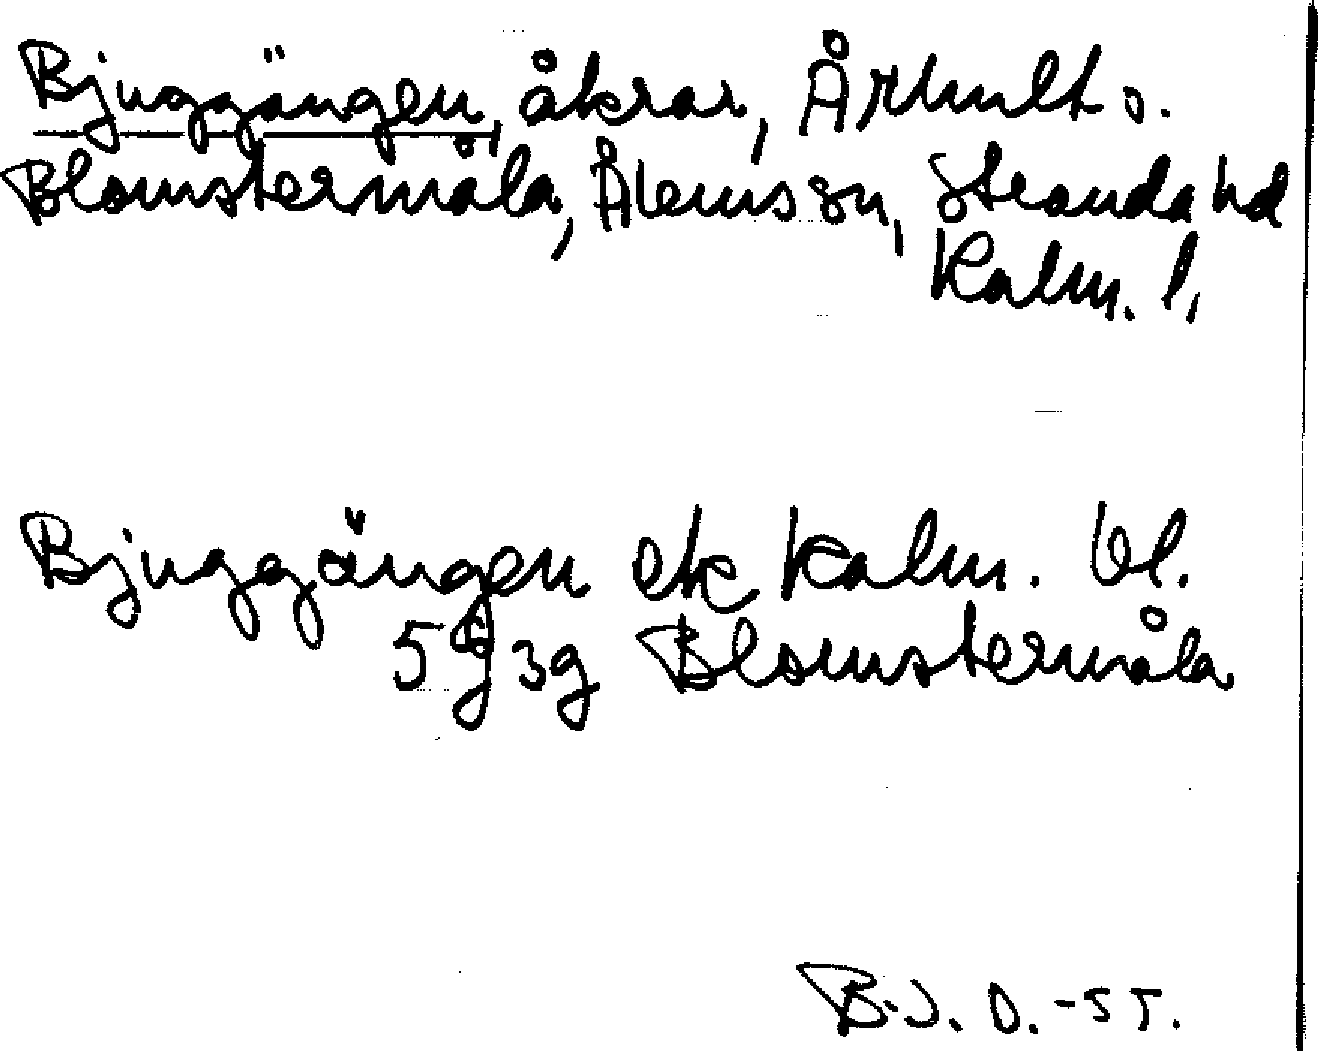 Bjuggängen, åkrar, Århult o.
Blomstermåla, Ålems sn, Stranda hd
Kalm. l.
Bjuggängen ek Kalm. bl.
5 g 3g Blomstermåla
B.J. O. -55.